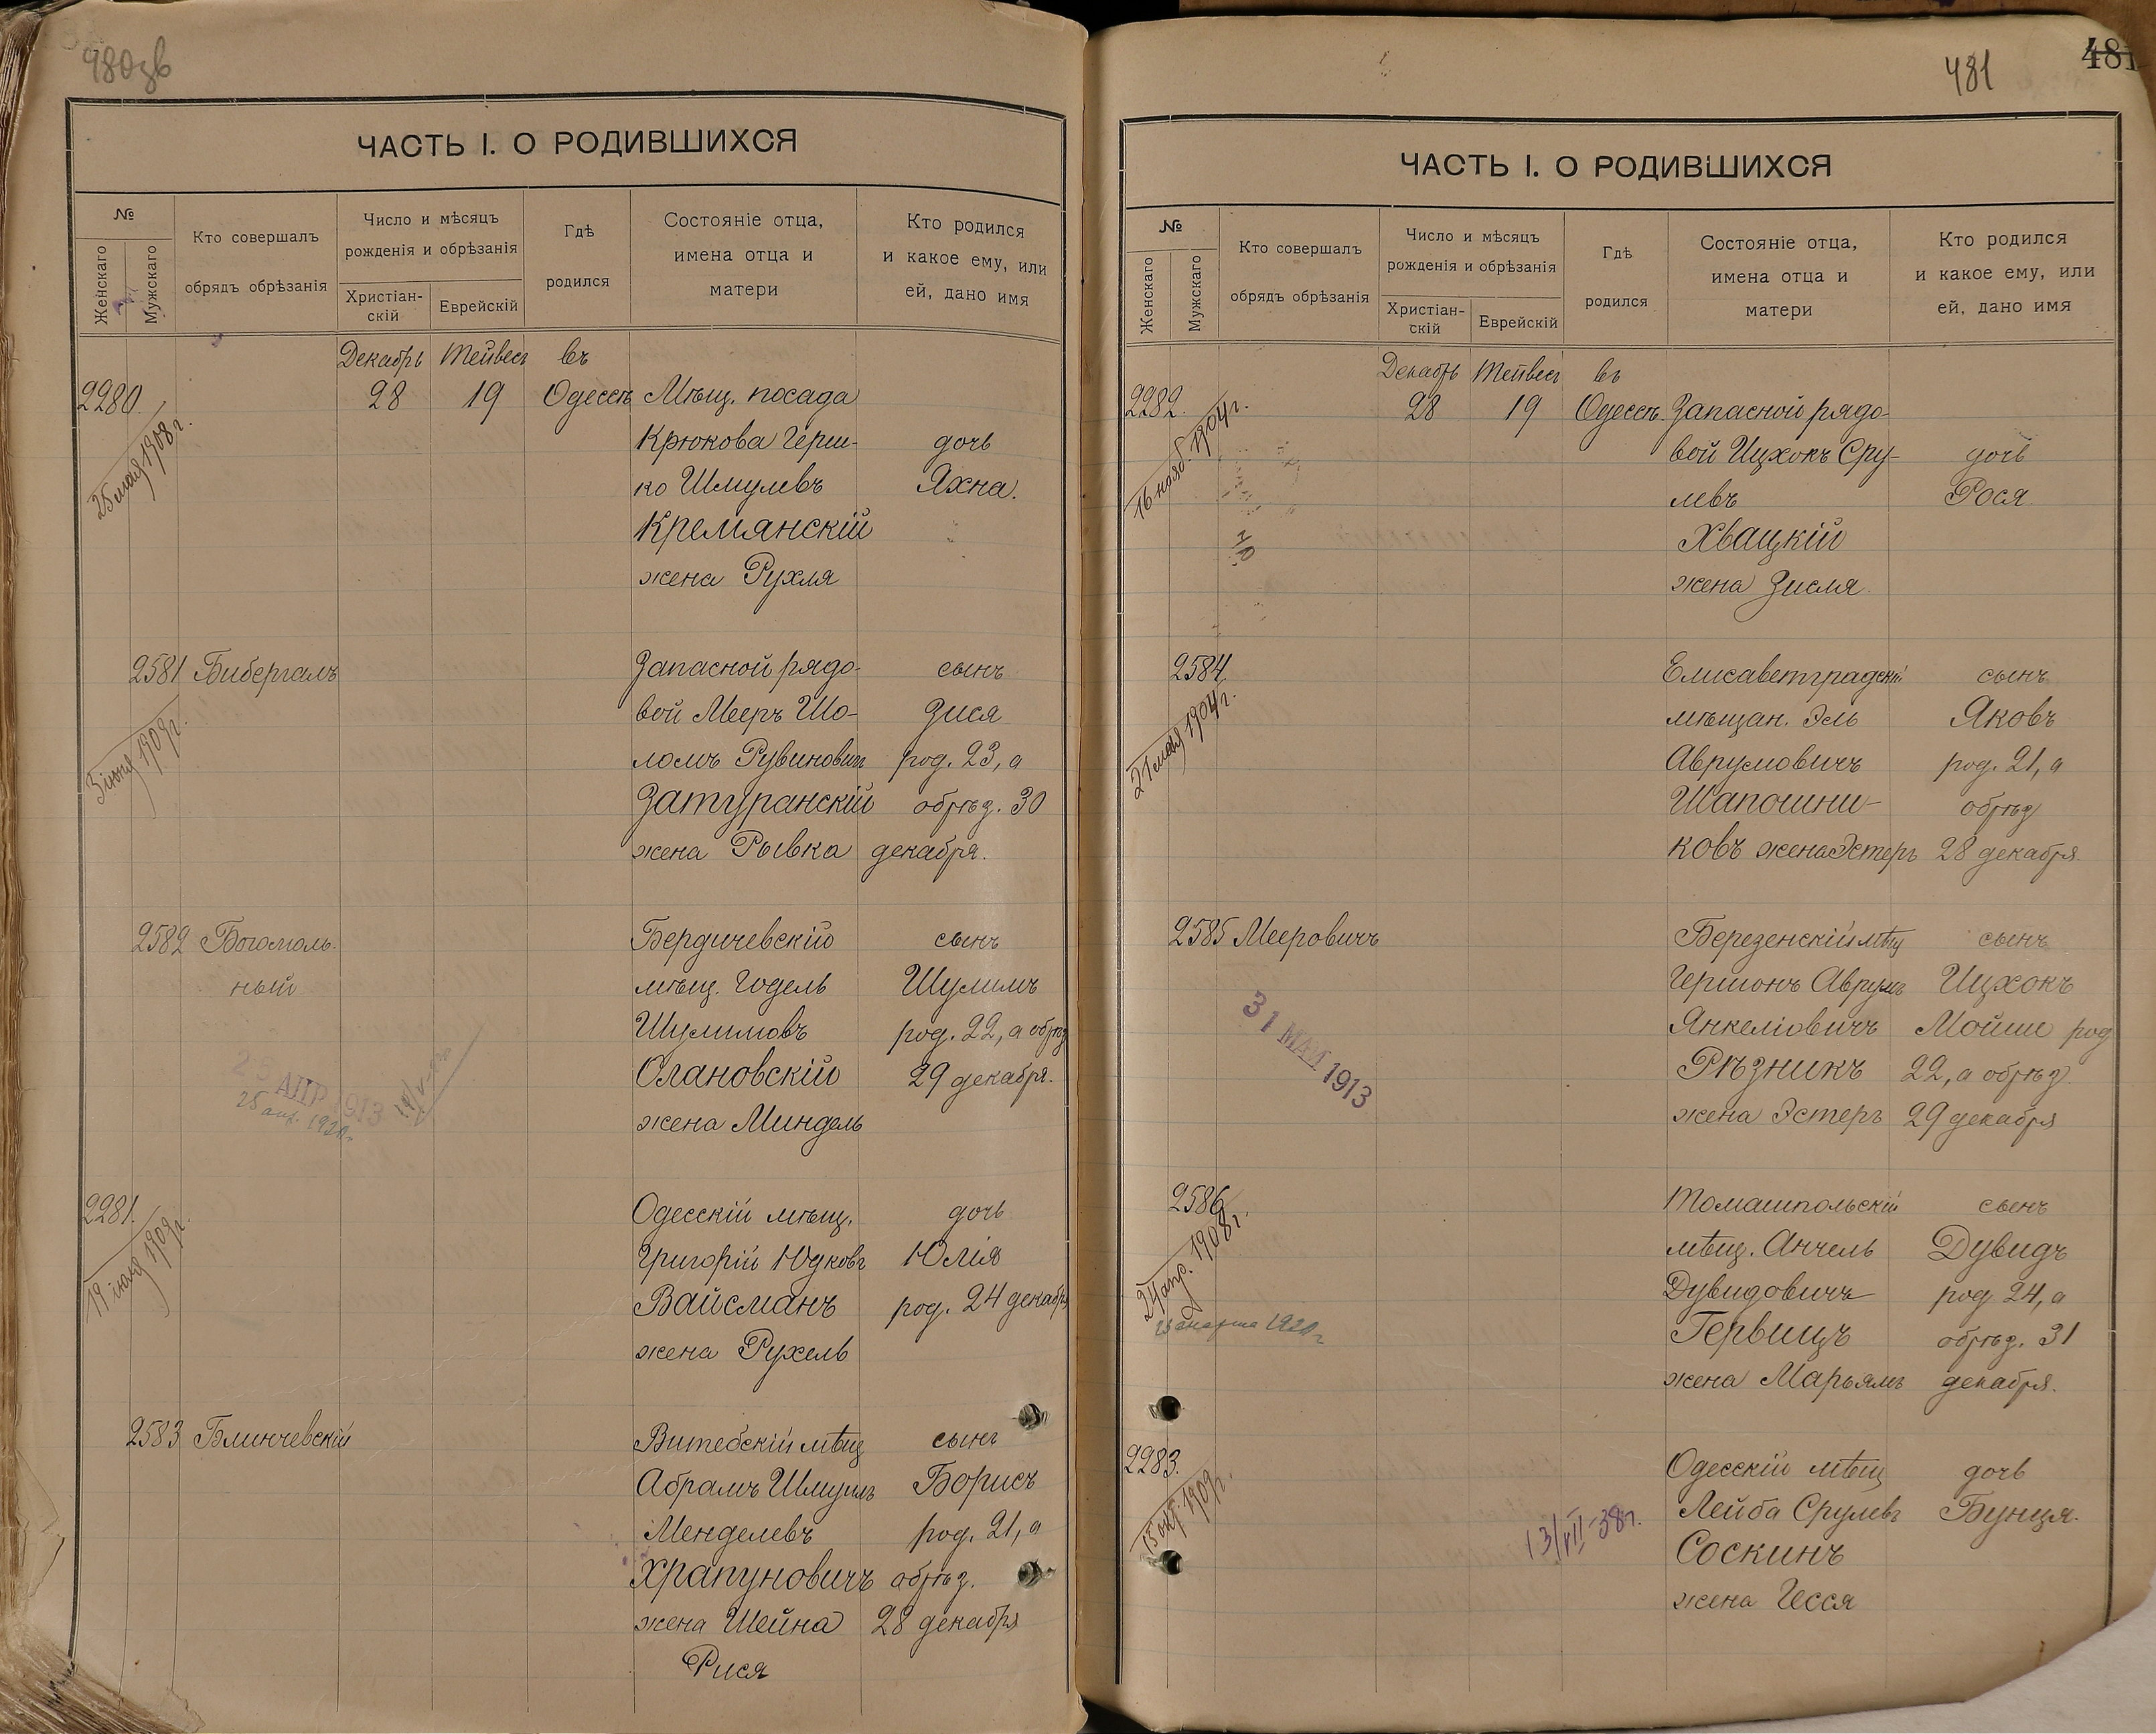 480зв
ЧАСТЬ I. О РОДИВШИХСЯ
№
Женскаго
Мужскаго
Кто совершалъ
обрядъ обрѣзанія
Число и мѣсяцъ
рожденія и обрѣзанія
Христіан-
скій
Еврейскій
Гдѣ
родился
Состояніе отца,
имена отца и
матери
Кто родился
и какое ему, или
ей, дано имя
Декабрь Тейвесъ въ
2280 28 19 Одессѣ Мѣщ. посада
Крюкова Герш- дочь
ко Шмулевъ Яхна.
Кремянскій
жена Рухля
25 мая 1908 г.
2581 Бибергалъ Запасной рядо- сынъ
вой Мееръ Шо- Зися
ломъ Рувиновичъ род. 23, а
Затуранскій обрѣз. 30
жена Рывка декабря.
3 іюня 1909 г.
2582 Богомоль- Бердичевскій сынъ
ный мѣщ. Годель Шулимъ
Шулимовъ род. 22, а обрѣз
Слановскій 29 декабря.
жена Миндель
АПР 1913
25 апр. 1920 г.
2281. Одесскій мѣщ. дочь
Григорій Юдковъ Юлія
Вайсманъ род. 24 декабря
жена Рухель
19 іюня 1909 г.
2583 Блинчевскій Витебскій мѣщ сынъ
Абрамъ Шмуилъ Борисъ
Менделевъ род. 21, а
Храпуновичъ обрѣз.
жена Шейна 28 декабря
Рися
481
481
ЧАСТЬ I. О РОДИВШИХСЯ
№
Женскаго
Мужскаго
Кто совершалъ
обрядъ обрѣзанія
Число и мѣсяцъ
рожденія и обрѣзанія
Христіан-
скій
Еврейскій
Гдѣ
родился
Состояніе отца,
имена отца и
матери
Кто родился
и какое ему, или
ей, дано имя
Декабрь Тейвесъ въ
2282. 28 19 Одессѣ. Запасной рядо-
вой Ицхокъ Сру- дочь
левъ Рося
Хвацкій
жена Зисля
16 нояб. 1904 г.
2584. Елисаветградскій сынъ
мѣщан. Эль Яковъ
Аврумовичъ род. 21, а
Шапошни- обрѣз
ковъ жена Эстеръ 28 декабря.
21 мая 1904 г.
2585 Мееровичъ Березенскій мѣщ сынъ
Гершонъ Аврумъ Ицхокъ
Янкеліовичъ Мойше род
Рѣзникъ 22, а обрѣз.
жена Эстеръ 29 декабря
31 МАЯ 1913
2586 Томашпольскій сынъ
мѣщ. Анчель Дувидъ
Дувидовичъ род 24, а
Гервицъ обрѣз. 31
жена Марьямъ декабря.
24 апр. 1908 г.
23 марта 1920 г
2283. Одесскій мѣщ дочь
Лейба Срулевъ Бунця.
Соскинъ
жена Гесся
15 окт. 1909 г.
13/VII-38 г.